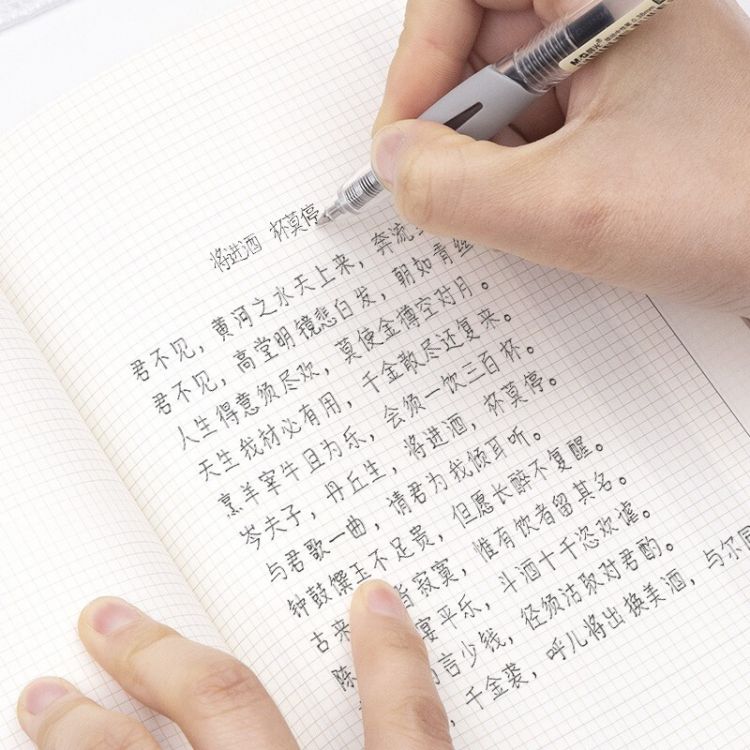 M&G晨光
将进酒 杯莫停
君不见，黄河之水天上来，奔流
君不见，高堂明镜悲白发，朝如青丝
人生得意须尽欢，莫使金樽空对月。
天生我材必有用，千金散尽还复来。
烹羊宰牛且为乐，会须一饮三百杯。
岑夫子，丹丘生，将进酒，杯莫停。
与君歌一曲，请君为我倾耳听。
钟鼓馔玉不足贵，但愿长醉不复醒。
古来 皆寂寞，惟有饮者留其名。
陈 宴平乐，斗酒十千恣欢谑。
言少钱，径须沽取对君酌。
，千金裘，呼儿将出换美酒，与尔同